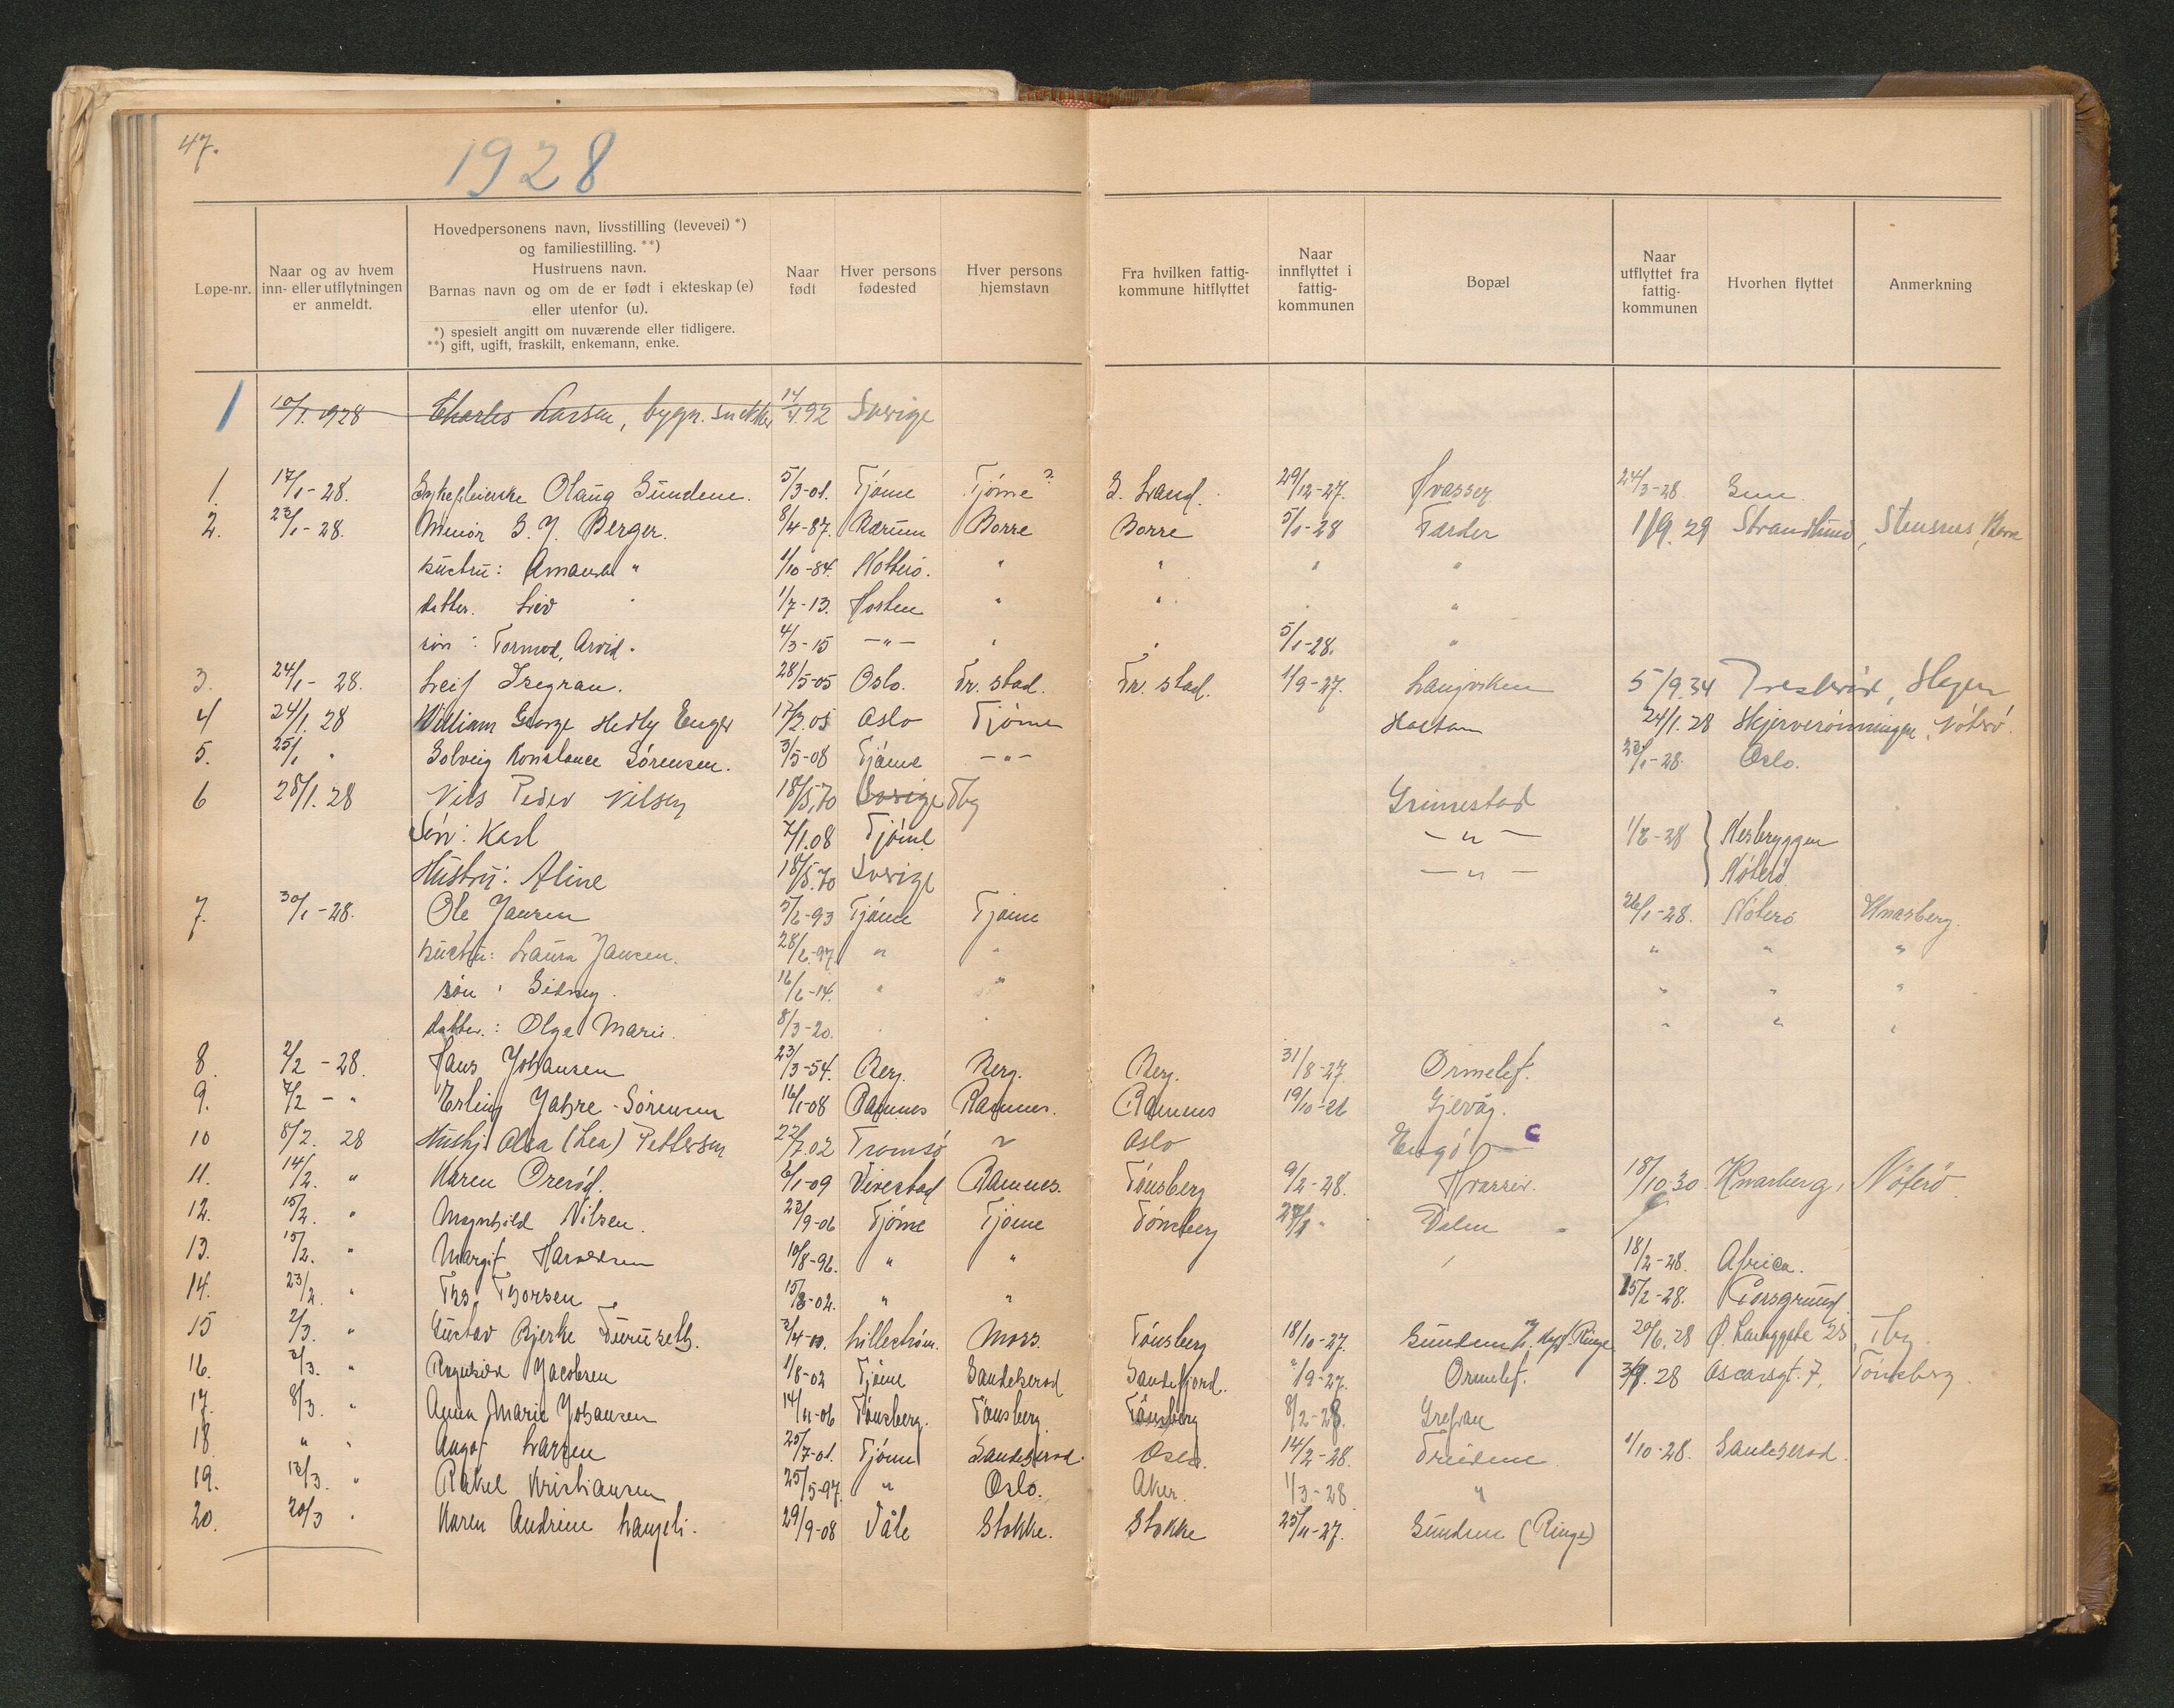 47.
1928
Løpe-nr.
Naar og av hvem
inn- eller utflytningen
er anmeldt.
Hovedpersonens navn, livsstilling (levevei) *)
og familiestilling. **)
Hustruens navn.
Barnas navn og om de er født i ekteskap (e)
eller utenfor (u).
*) spesielt angitt om nuværende eller tidligere.
**) gift, ugift, fraskilt, enkemann, enke.
Naar
født
Hver persons
fødested
Hver persons
hjemstavn
Fra hvilken fattig-
kommune hitflyttet
Naar
innflyttet i
fattig-
kommunen
Bopæl
Naar
utflyttet fra
fattig-
kommunen
Hvorhen flyttet
Anmerkning
1 10/1. 1928 Charles Larsen, bygn. snekker 92 Sverige
1. 17/1-28. Sykepleierske Olaug Sundene. 5/3-01. Tjøme Tjøme? S. Land. 29/12-27. Hvasser 24/3-28
2. 23/1-28. Minør S. J. Berger. 8/4-87. Bærum Borre Borre 5/1-28 Færder 1/9.29 Strandlund, Stensnes, Borre
hustru: Amanda " 1/10-84. Nøtterø. " " " "
datter. Liv " 1/7-13. Horten " " " "
søn: Tormod, Arvid. 4/3-15 -"- " " 5/1-28. "
3. 24/1-28. Leif Isegran. 28/5-05 Oslo. Fr. stad. Fr. stad. 1/9-27. Langviken 5/9.34
4 24/1.28 William George Hedly Enger 17/2.05 Oslo Tjøme 24/1.28 Skjerverønningen, Nøterø.
5. 25/1 " Solveig Konstance Sørensen. 3/5-08 Tjøme -"- 23/1-28. Oslo.
6 28/1.28 Nils Peder Nilsen 18/5.70 Sverige Tbg Grimestad
Søn: Karl 7/1.08 Tjøme -"- 1/2-28 Nesbryggen
Hustru: Aline 18/5.70 Sverige -"- Nøterø
7. 30/1-28. Ole Jansen 5/6-93 Tjøme Tjøme 26/1-28. Nøterø Knarberg.
hustru: Laura Jansen. 28/6-97 " " " " "
søn: Sidney. 16/6-14. " " " " "
datter.: Olga Marie. 8/3-20. " " " " "
8. 2/2-28. Hans Johansen 23/3-54. Berg. Berg. Berg. 31/8-27. Ormelet.
9. 7/2-" Erling Jahre-Sørensen 16/1-08 Ramnes Ramnes. Ramnes 19/10-26 Gjervåg.
10 8/2. 28 Hushj. Alea (Lea) Pettersen 22/7.02 Tromsø ~ Oslo Engø
11. 14/2. " Karen Orerød. 6/1-09 Vivestad Ramnes. Tønsberg 9/2-28. Hvasser. 18/10.30 Knarberg, Nøterø.
12. 15/2. " Magnhild Nilsen. 23/9-06 Tjøme Tjøme Tønsberg 27/1 " Dalen
13. 15/2. " Margit Haraldsen 10/8-96. " " 18/2-28. Africa.
14. 23/2. " Ths. Thorsen 15/8-02. " " 15/2-28. Porsgrund.
15 2/3. " Gustav Bjerke Furuseth. Lillestrøm. Moss. Tønsberg 18/10-27. Sundene 20/6.28 Ø. Langgate 25, Tbg.
16. 3/3. " Ragnhild Jacobsen 1/8-02 Tjøme Sandeherad Sandefjord. 1/9-27. Ormelet. 28 Oscarsgt. 7, Tønsberg.
17. 8/3. " Agnes Marie Johansen 14/11-06 Tønsberg. Tønsberg Tønsberg 8/2-28.
18 " " Aagot Larsen 25/7-01. Tjøme Sandeherad. Oslo. 14/2-28. 1/10-28. Sandeherad.
19. 12/3. " Rakel Kristiansen 25/5-97. " Oslo. Aker. 1/3-28 "
20. 20/3 " Karen Andrine Langeli. 29/9-08 Våle Stokke. Stokke 25/11-27. Sundene (Ringe)